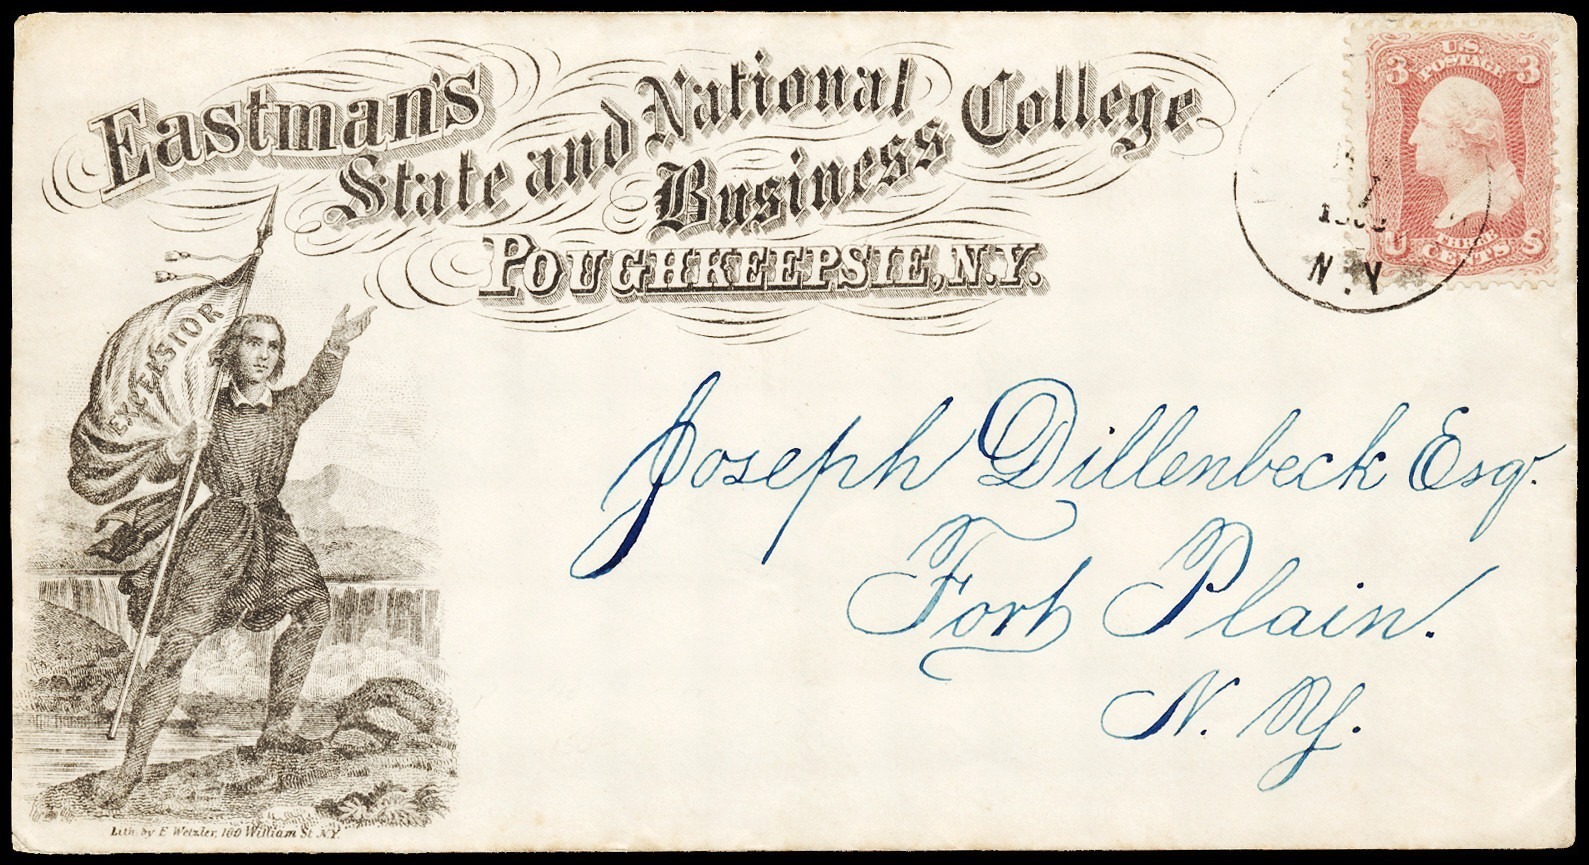 Eastman's
State and National
Business College
POUGHKEEPSIE, N.Y.
EXCELSIOR
U.S.
POSTAGE
3 3
U THREE S
CENTS
N.Y
Joseph Dillenbeck Esq.
Fort Plain.
N. Y.
Lith. by E Wetzler, 160 William St. N.Y.